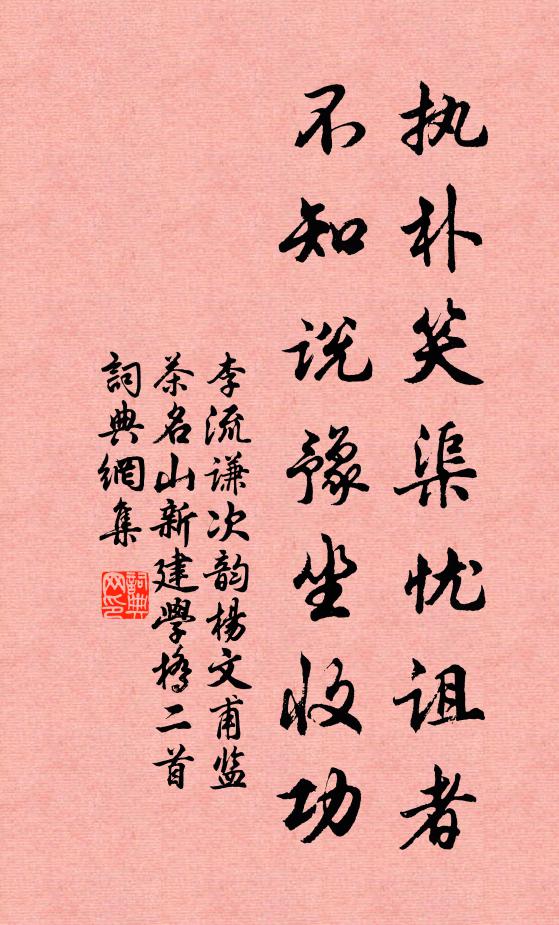 执朴笑渠忧诅者
不知说豫坐收功
李流谦次韵杨文甫监
茶名山新建学桥二首
詞典網集
詞典网印